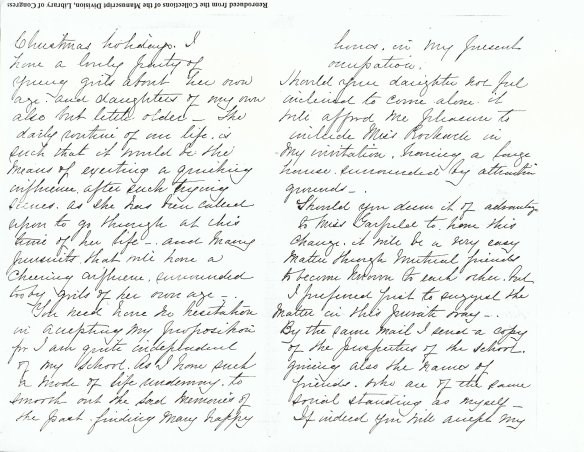 Reproduced from the Collections of the Manuscript Division, Library of Congress
Christmas holidays. I
have a lovely party of
young girls about her own
age. and daughters of my own
also but little older – The
daily routine of our life. is
such that it would be the
means of exerting a quieting
influence, after such trying
scenes. as she has been called
upon to go through at this
time of her life –. and many
pursuits. that will have a
cheering influence. surrounded
by girls of her own age –.
You need have no hesitation
in accepting my proposition
for I am quite independent
of my School. As I have such
a mode of life underway. to
smooth out the sad memories of
the past. finding many happy
hours. in my present
occupation.
Should your daughter not feel
inclined to come alone. it
will afford me pleasure to
include Miss Rockwell in
my invitation. having a large
house. surrounded by attractive
grounds –.
Should you deem it of advantage
to Miss Garfield to have this
change. it will be a very easy
matter through mutual friends
to become known to each other. but
I preferred just to suggest the
matter in this private way –.
By the same mail I send a copy
of the prospectus of the school.
giving also the names of
friends. who are of the same
social standing as myself –
If indeed you will accept my